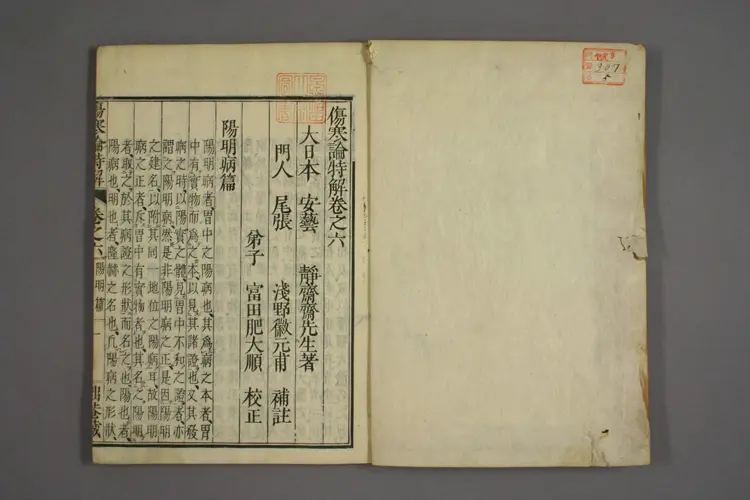 傷寒論特解卷之六
大日本 安藝 靜齋齋先生著
門人 尾張 淺野徽元甫 補註
弟子 富田肥大順 校正
陽明病篇
陽明病者、胃中之陽病也、其為病之本者、胃
中有實物而為之本、以見其諸證也、又其發
病之時、以陽實之體、見胃中不和之證者、亦
謂之陽明病、然是非陽明病之正、是因陽明
之建名、以附其同一地位之陽病耳、故陽明
病之正者、斥胃中有實物者也、其名之陽明
者、取之於其病證之形狀而名之也、陽也者、
陽病也、明也者、之名也、凡陽病之形狀、
傷寒論特解 卷之六 陽明篇 一
307
5